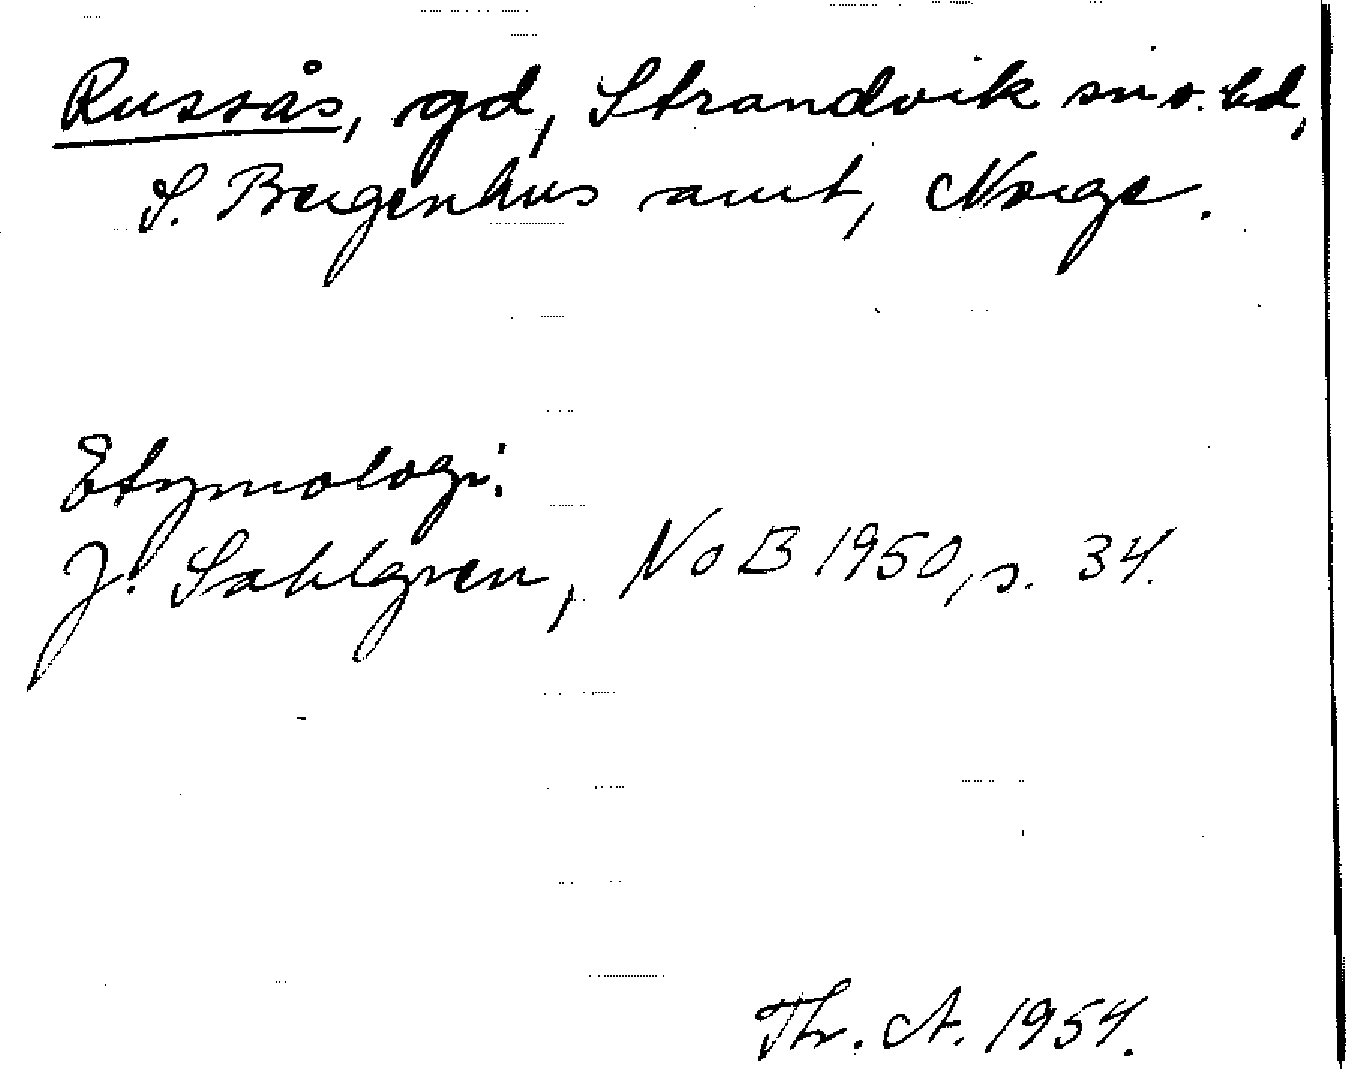 Russås, gd, Strandvik sn o. hd,
S. Bergenhus amt, Norge.
Etymologi:
J. Sahlgren, NoB 1950, s. 34.
Thr. A. 1954.